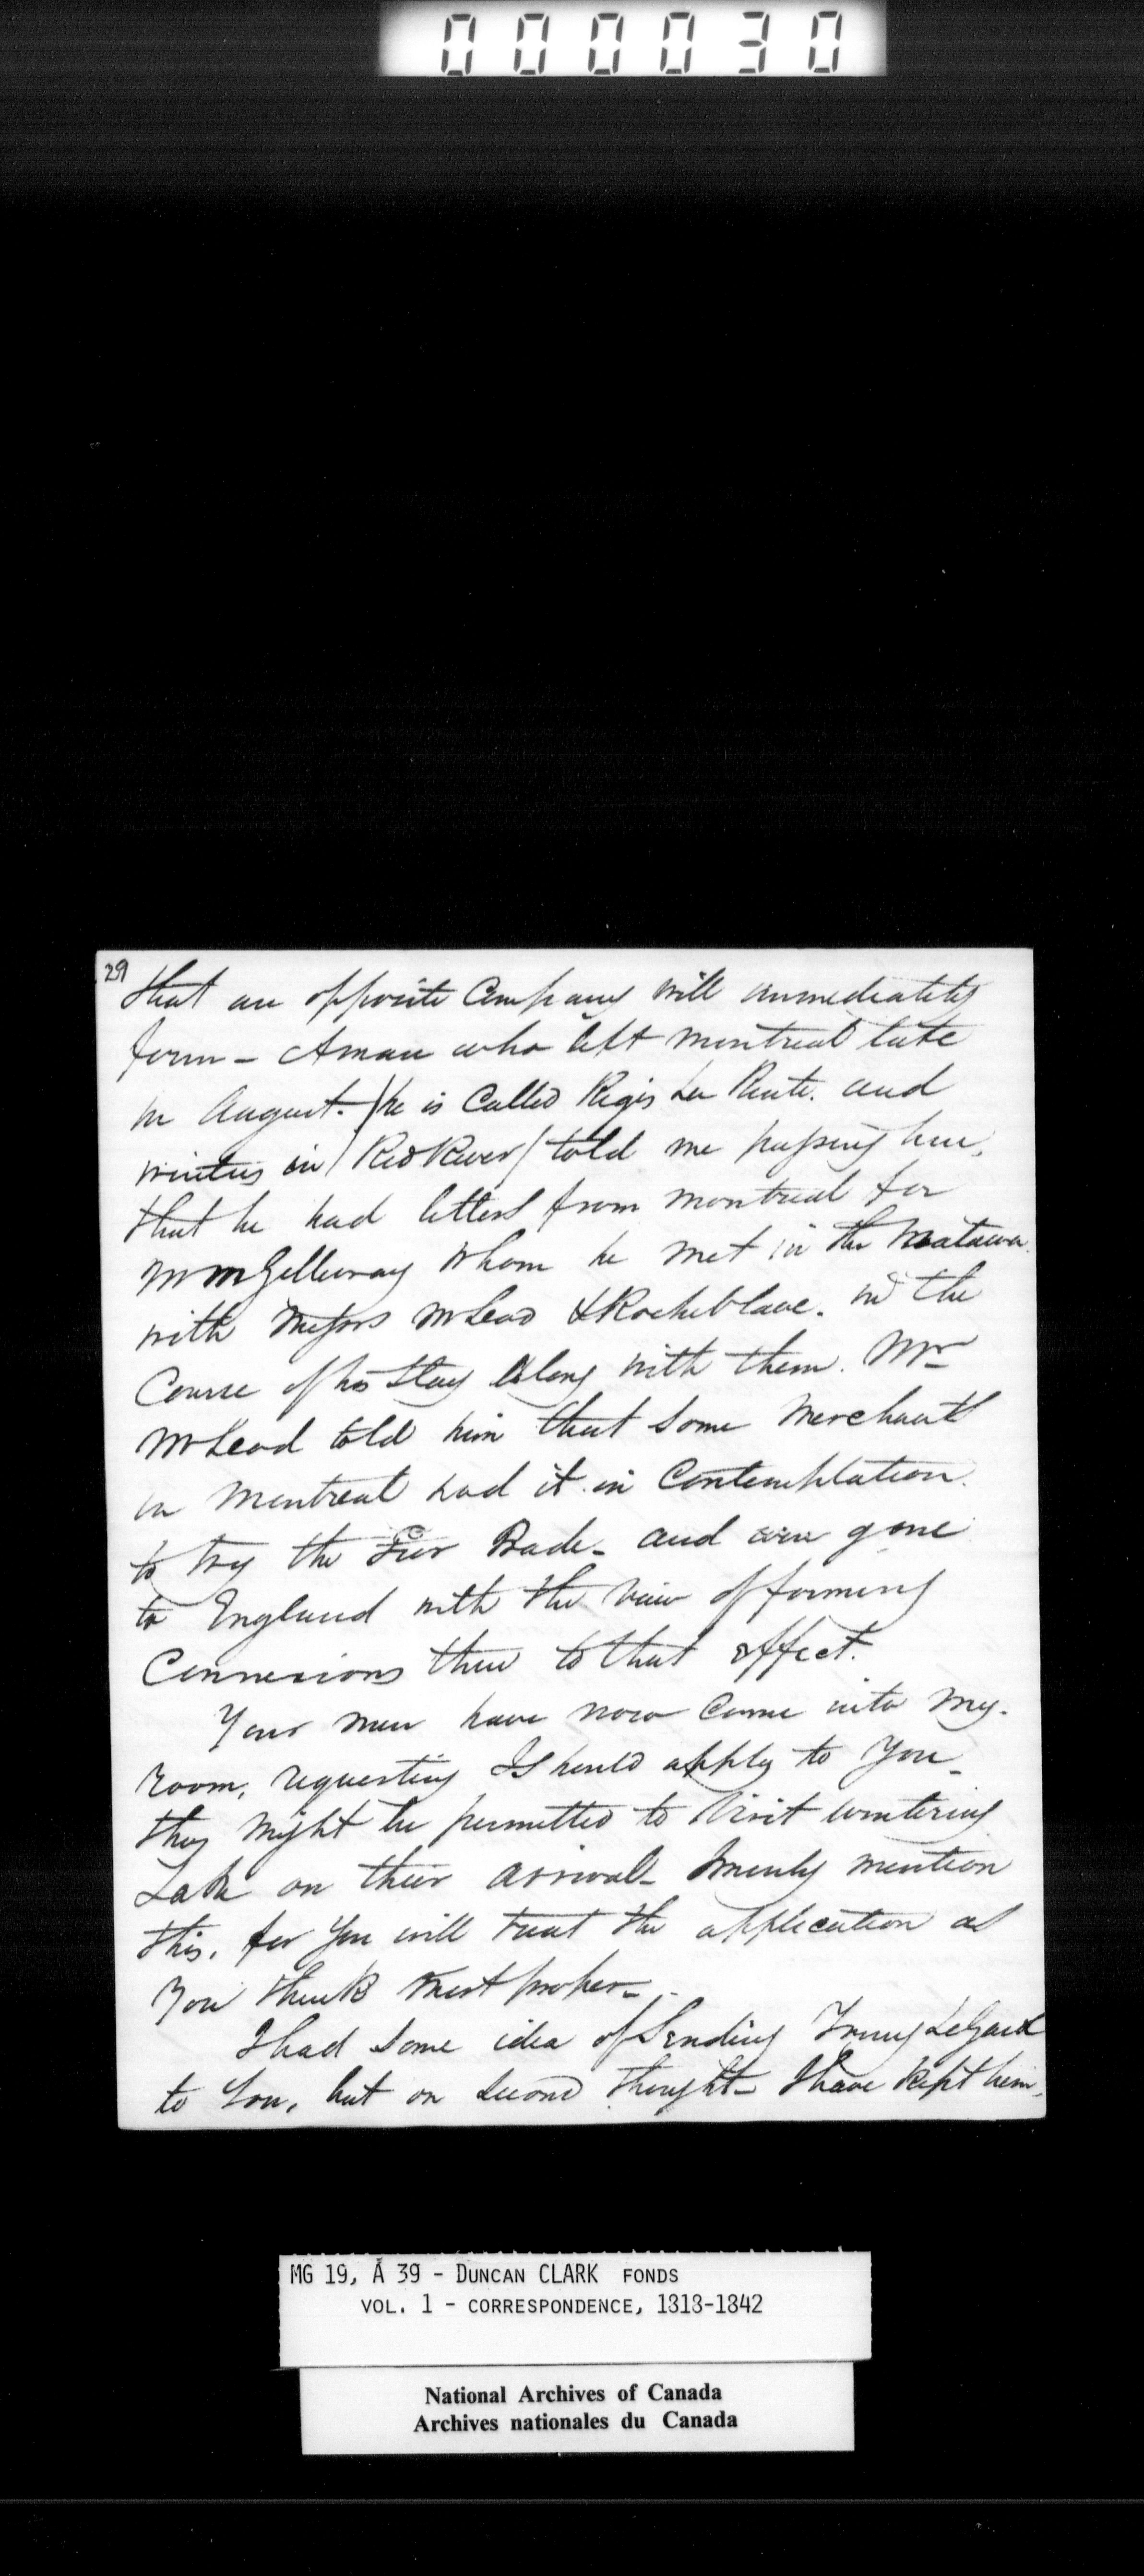 000030
29
that an opposite Company will immediately
form - A man who left Montreal late
in August. (he is Called Regis La Rente. and
winters in / Red River / told me passing here,
that he had letters from Montreal for
Mr McGillivray whom he met in the Matawa
with Messrs McLeod & Rocheblave. in the
Course of his Stay along with them. Mr
McLeod told him that some Merchants
in Montreal had it in Contemplation.
to try the Fur Trade - and were gone
to England with the view of forming
Connexions there to that effect.
Your men have now Come into my.
room, requesting I should apply to You -
they might be permitted to Visit wintering
Lake on their arrival - I merely mention
this, for You will treat the application as
You think most proper -
I had some idea of Sending Young LeGard
to You, but on second thought - I have kept him,
MG 19, A 39 - DUNCAN CLARK FONDS
VOL. 1 - CORRESPONDENCE, 1818-1842
National Archives of Canada
Archives nationales du Canada